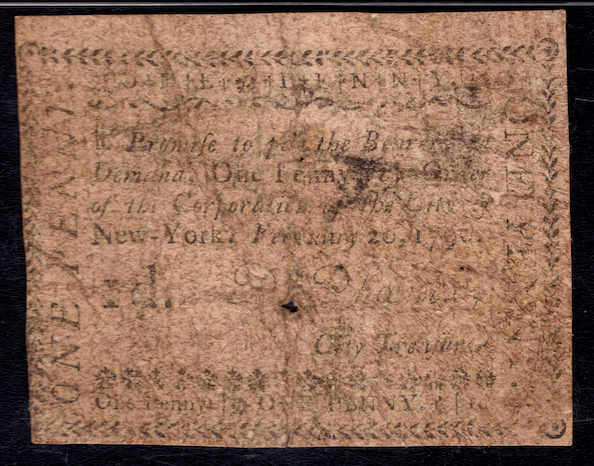 ONE PENNY
I Promise to pay the Bearer, on
Demand, One Penny, By Order
of the Corporation of the City of
New-York. February 20, 1790.
1d. D. Phœnix,
City Treasurer
One Penny. ONE PENNY.
ONE PENNY
ONE PENNY